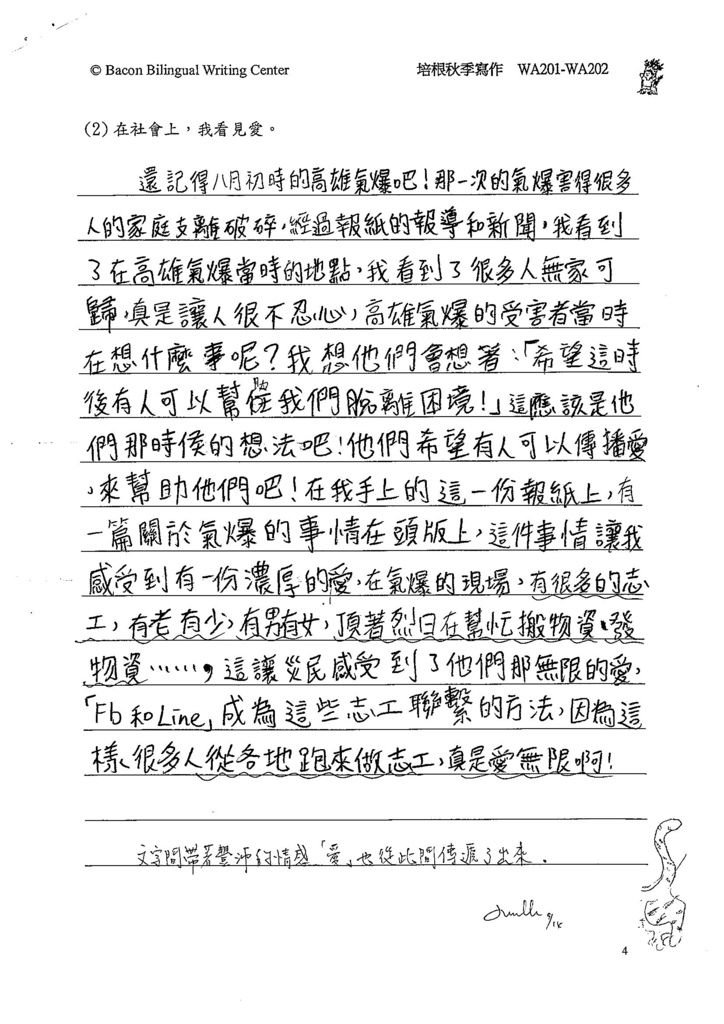 © Bacon Bilingual Writing Center 培根秋季寫作 WA201-WA202
(2) 在社會上，我看見愛。
還記得八月初時的高雄氣爆吧！那一次的氣爆害得很多
人的家庭支離破碎，經過報紙的報導和新聞，我看到
了在高雄氣爆當時的地點，我看到了很多人無家可
歸，真是讓人很不忍心，高雄氣爆的受害者當時
在想什麼事呢？我想他們會想著：「希望這時
後有人可以幫助我們脫離困境！」這應該是他
們那時侯的想法吧！他們希望有人可以傳播愛
，來幫助他們吧！在我手上的這一份報紙上，有
一篇關於氣爆的事情在頭版上，這件事情讓我
感受到有一份濃厚的愛，在氣爆的現場，有很多的志
工，有老有少，有男有女，頂著烈日在幫忙搬物資、發
物資……，這讓災民感受到了他們那無限的愛，
「Fb和Line」成為這些志工聯繫的方法，因為這
樣，很多人從各地跑來做志工，真是愛無限啊！
文字間帶著豐沛的情感「愛」也從此間傳遞了出來．
9/18
4